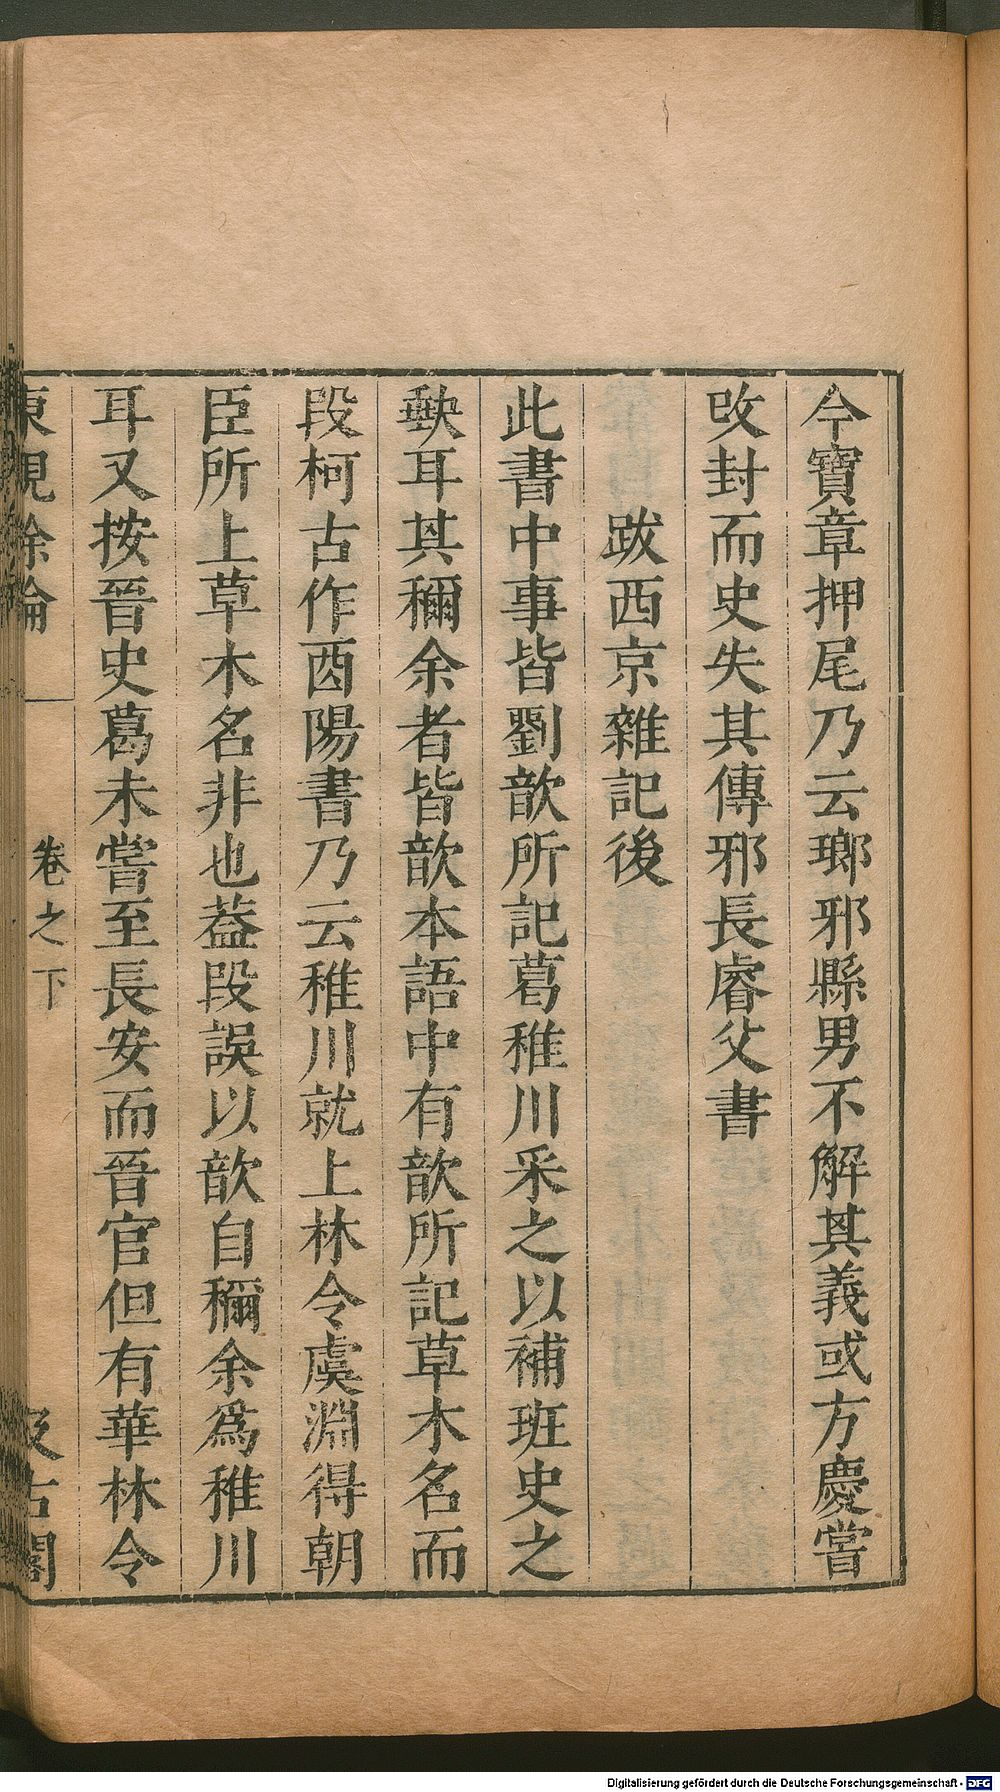 今寶章押尾乃云瑯邪縣男不解其義或方慶嘗
改封而史失其傳邪長睿父書
跋西京雜記後
此書中事皆劉歆所記葛稚川采之以補班史之
缺耳其稱余者皆歆本語中有歆所記草木名而
段柯古作酉陽書乃云稚川就上林令虞淵得朝
臣所上草木名非也葢段誤以歆自稱余爲稚川
耳又按晉史葛未嘗至長安而晉官但有華林令
東觀餘論
卷之下
汲古閣
Digitalisierung gefördert durch die Deutsche Forschungsgemeinschaft - DFG